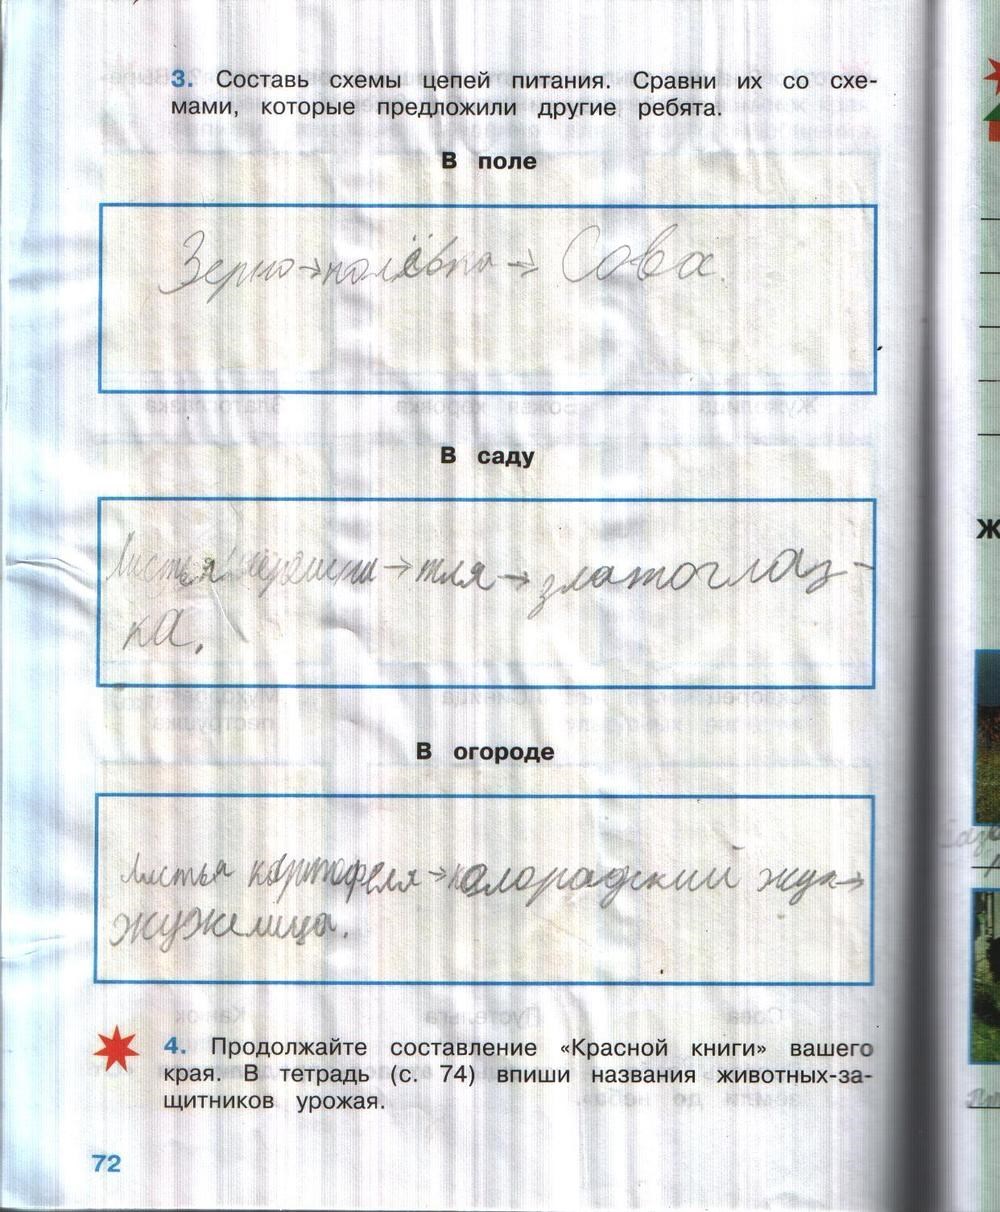 3. Составь схемы цепей питания. Сравни их со схе-
мами, которые предложили другие ребята.
В поле
Зерно → полёвка → Сова.
В саду
Листья → тля → златоглаз-
ка.
В огороде
Листья картофеля → колорадский жук →
жужелица.
4. Продолжайте составление «Красной книги» вашего
края. В тетрадь (с. 74) впиши названия животных-за-
щитников урожая.
72
Ж